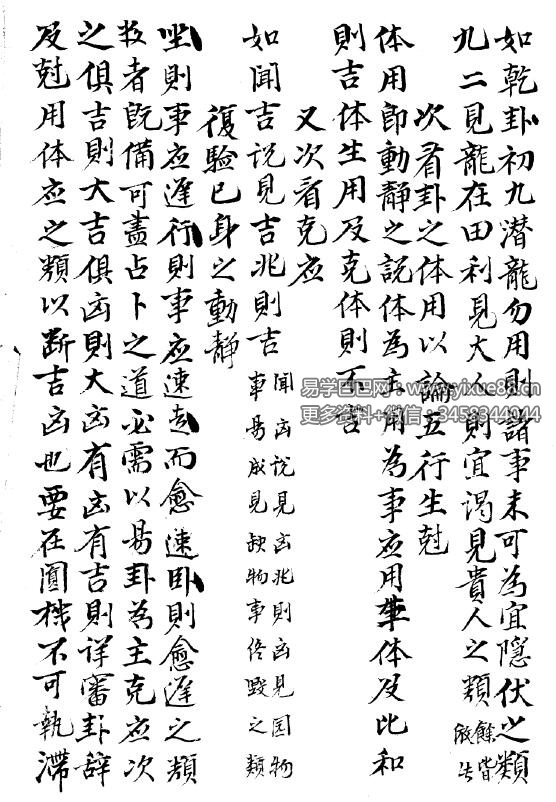 如乾卦初九潜龍勿用則諸事未可為宜隱伏之類
九二見龍在田利見大人則宜謁見貴人之類餘皆倣此
次看卦之体用以論五行生尅
体用即動靜之說体為主用為事应用体及比和
則吉体生用及克体則不吉
又次看克应
如聞吉說見吉兆則吉聞凶說見凶兆則凶見圓物
事易成見缺物事終毀之類
復驗已身之動靜
坐則事应遲行則事应速走而愈速卧則愈遲之類
数者既備可盡占卜之道必需以易卦為主克应次
之俱吉則大吉俱凶則大凶有凶有吉則详審卦辞
及尅用体应之類以斷吉凶也要在圓機不可執滯
易学巴巴网：www.yixue88.cn
更多资料+微信：3458344044